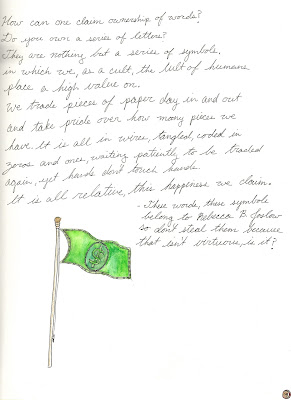 How can one claim ownership of words?
Do you own a series of letters?
They are nothing but a series of symbols.
in which we, as a cult, the cult of humans
place a high value on.
We trade pieces of paper day in and out
and take pride over how many pieces we
have. It is all in wires, tangled, coded in
zeros and ones, waiting patiently to be traded
again, yet hands don't touch hands.
It is all relative, this happeness we claim.
- These words, these symbols
belong to Rebecca B.
so don't steal them because
that isn't virtuous, is it?
$